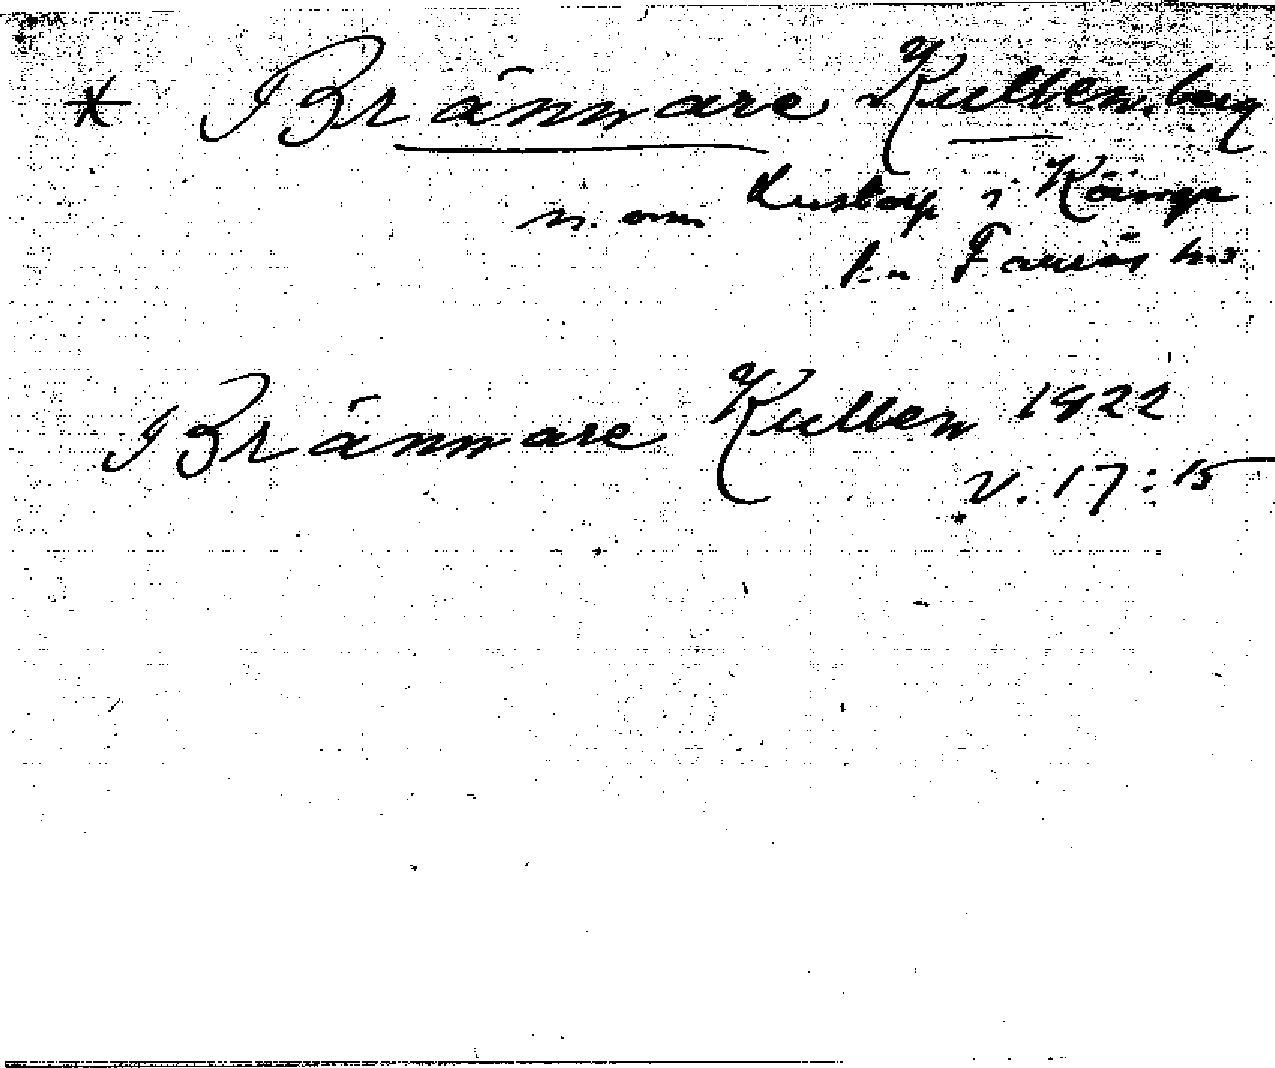 * Brännare Kullen, berg
n. om Lustorp i Kånge
Brännare Kullen 1922
V. 17:15